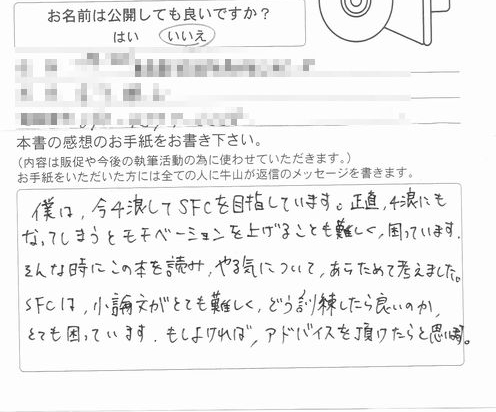 お名前は公開しても良いですか？
はい　いいえ
本書の感想のお手紙をお書き下さい。
（内容は販促や今後の執筆活動の為に使わせていただきます。）
お手紙をいただいた方には全ての人に牛山が返信のメッセージを書きます。
僕は、今4浪してSFCを目指しています。正直、4浪にも
なってしまうとモチベーションを上げることも難しく、困っています。
そんな時にこの本を読み、やる気について、あらためて考えました。
SFCは、小論文がとても難しく、どう訓練したら良いのか、
とても困っています。もしよければ、アドバイスを頂けたらと思います。